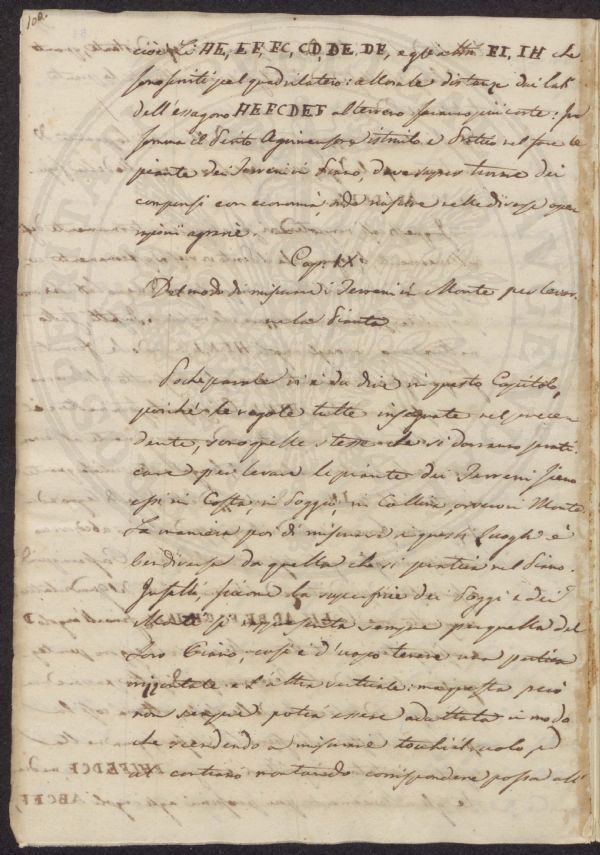 100.
cioè li HE, EF, FC, CD, DE, DF, e gli altri FI, IH che
sono finiti pel quadrilatero: allora le distanze dai lati
dell'essagono HEFCDEF al terreno saranno più corte: In
somma il Perito Agrimensore istruito e pratico nel fare le
piante dei Terreni in Piano, deve saper trarne dei
compensi con economia, nelle diverse ope
razioni agrarie.
Cap. IX
Del modo di misurare i Terreni in Monte per levar-
ne la Pianta
Poche parole vi è da dire in questo Capitolo,
poiché le regole tutte insegnate nel prece
dente, sono quelle stesse che si dovranno prati
care per levare le piante dei Terreni sieno
essi in Costa in Poggio in Collina, ovvero in Monte.
La maniera poi di misurare questi luoghi è
ben diversa da quella che si pratica nel Piano.
Infatti, siccome la superficie dei Poggi e dei
Monti si rappresenta sempre per quella del
loro Piano, così è d'uopo tenere una pertica
orizzontale e l'altra verticale: ma questa però
non sempre potrà essere adattata in modo
che scendendo a misurare tocchi il suolo, ed
al contrario montando corrispondere possa all'